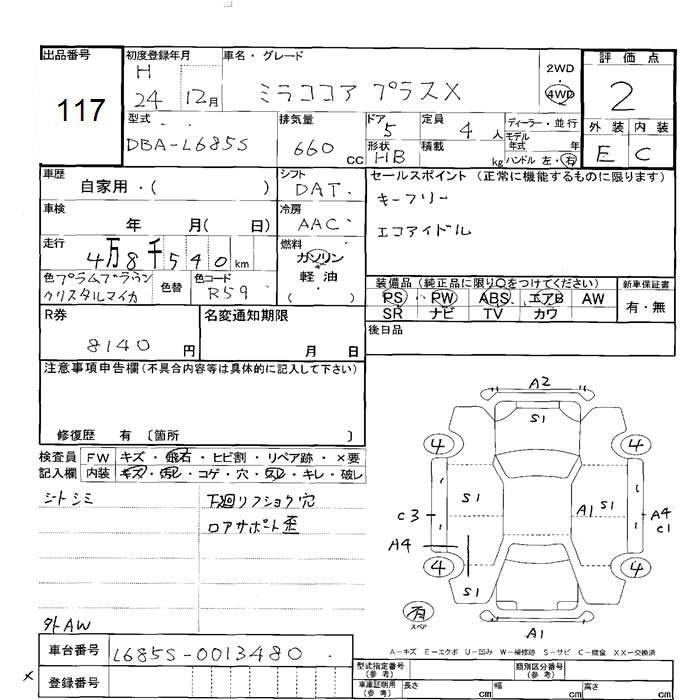 出品番号
117
初度登録年月
H
24 12月
車名・グレード
ミラココア プラスX
2WD
4WD
評価点
2
外装 内装
E C
型式
DBA-L685S
排気量
660 cc
ドア
5
形状
HB
定員
4 人
積載
kg
ディーラー・並行
モデル年式 年
ハンドル 左・右
車歴
自家用・( )
シフト
DAT
セールスポイント (正常に機能するものに限ります)
キーフリー
エコアイドル
車検
年 月( 日)
冷房
AAC
走行
4万8千540km
燃料
ガソリン
軽油
( )
色 プラムブラウン
クリスタルマイカ
色替
色コード
R59
装備品 (純正品に限り○をつけてください)
PS PW ABS エアB AW
SR ナビ TV カワ
新車保証書
有・無
R券
8140 円
名変通知期限
月 日
後日品
注意事項申告欄(不具合内容等は具体的に記入して下さい)
修復歴 有 〔箇所 〕
検査員 FW キズ・飛石・ヒビ割・リペア跡・×要
記入欄 内装 キズ・汚レ・コゲ・穴・スレ・キレ・破レ
シートシミ
下廻リフショク穴
ロアサポート歪
外AW
A2
S1
4 4
S1 A1 S1
C3
A4
C1
A4
4 4
S1
有
スペア
A1
A-キズ E-エクボ U-凹み W-補修跡 S-サビ C-腐食 XX-交換済
車台番号
L685S-0013480
登録番号
×
型式指定番号
(参考)
類別区分番号
(参考)
車庫証明用
(参考)
長さ cm 幅 cm 高さ cm